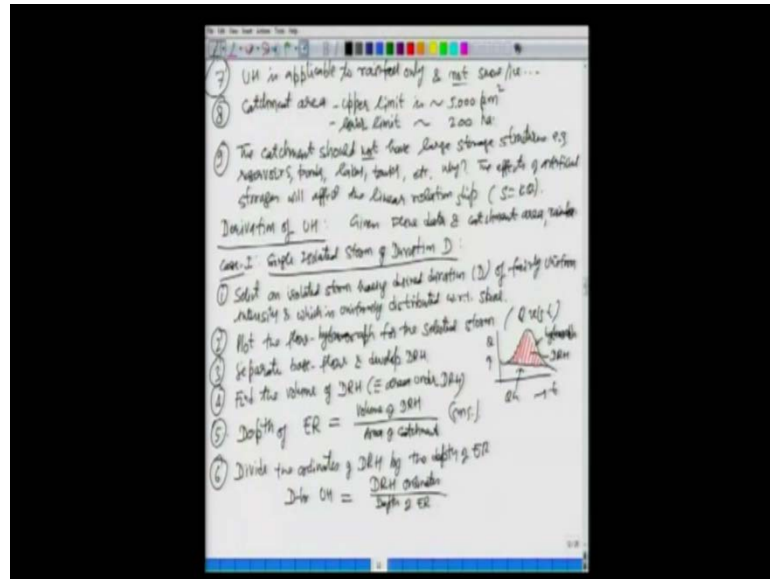 7 UH is applicable to rainfall only & not snow/ice...
8 Catchment area - upper limit is ~ 5000 km²
- lower limit ~ 200 ha.
9 The catchment should not have large storage structures e.g.
reservoirs, ponds, lakes, tanks, etc. Why? The effects of artificial
storages will affect the linear relationship (S = KQ).
Derivation of UH: Given flow data & catchment area,
Case-I: Single Isolated Storm of Duration D:
1 Select an isolated storm having desired duration (D) of fairly uniform
intensity & which is uniformly distributed w.r.t.
2 Plot the flow-hydrograph for the selected storm (Q vs. t)
3 Separate base-flow & develop DRH
4 Find the volume of DRH (≡ area under DRH)
5 Depth of ER = Volume of DRH / Area of Catchment
6 Divide the ordinates of DRH by the depth of ER
D-hr UH = DRH ordinates / Depth of ER
Q
hydrograph
DRH
t